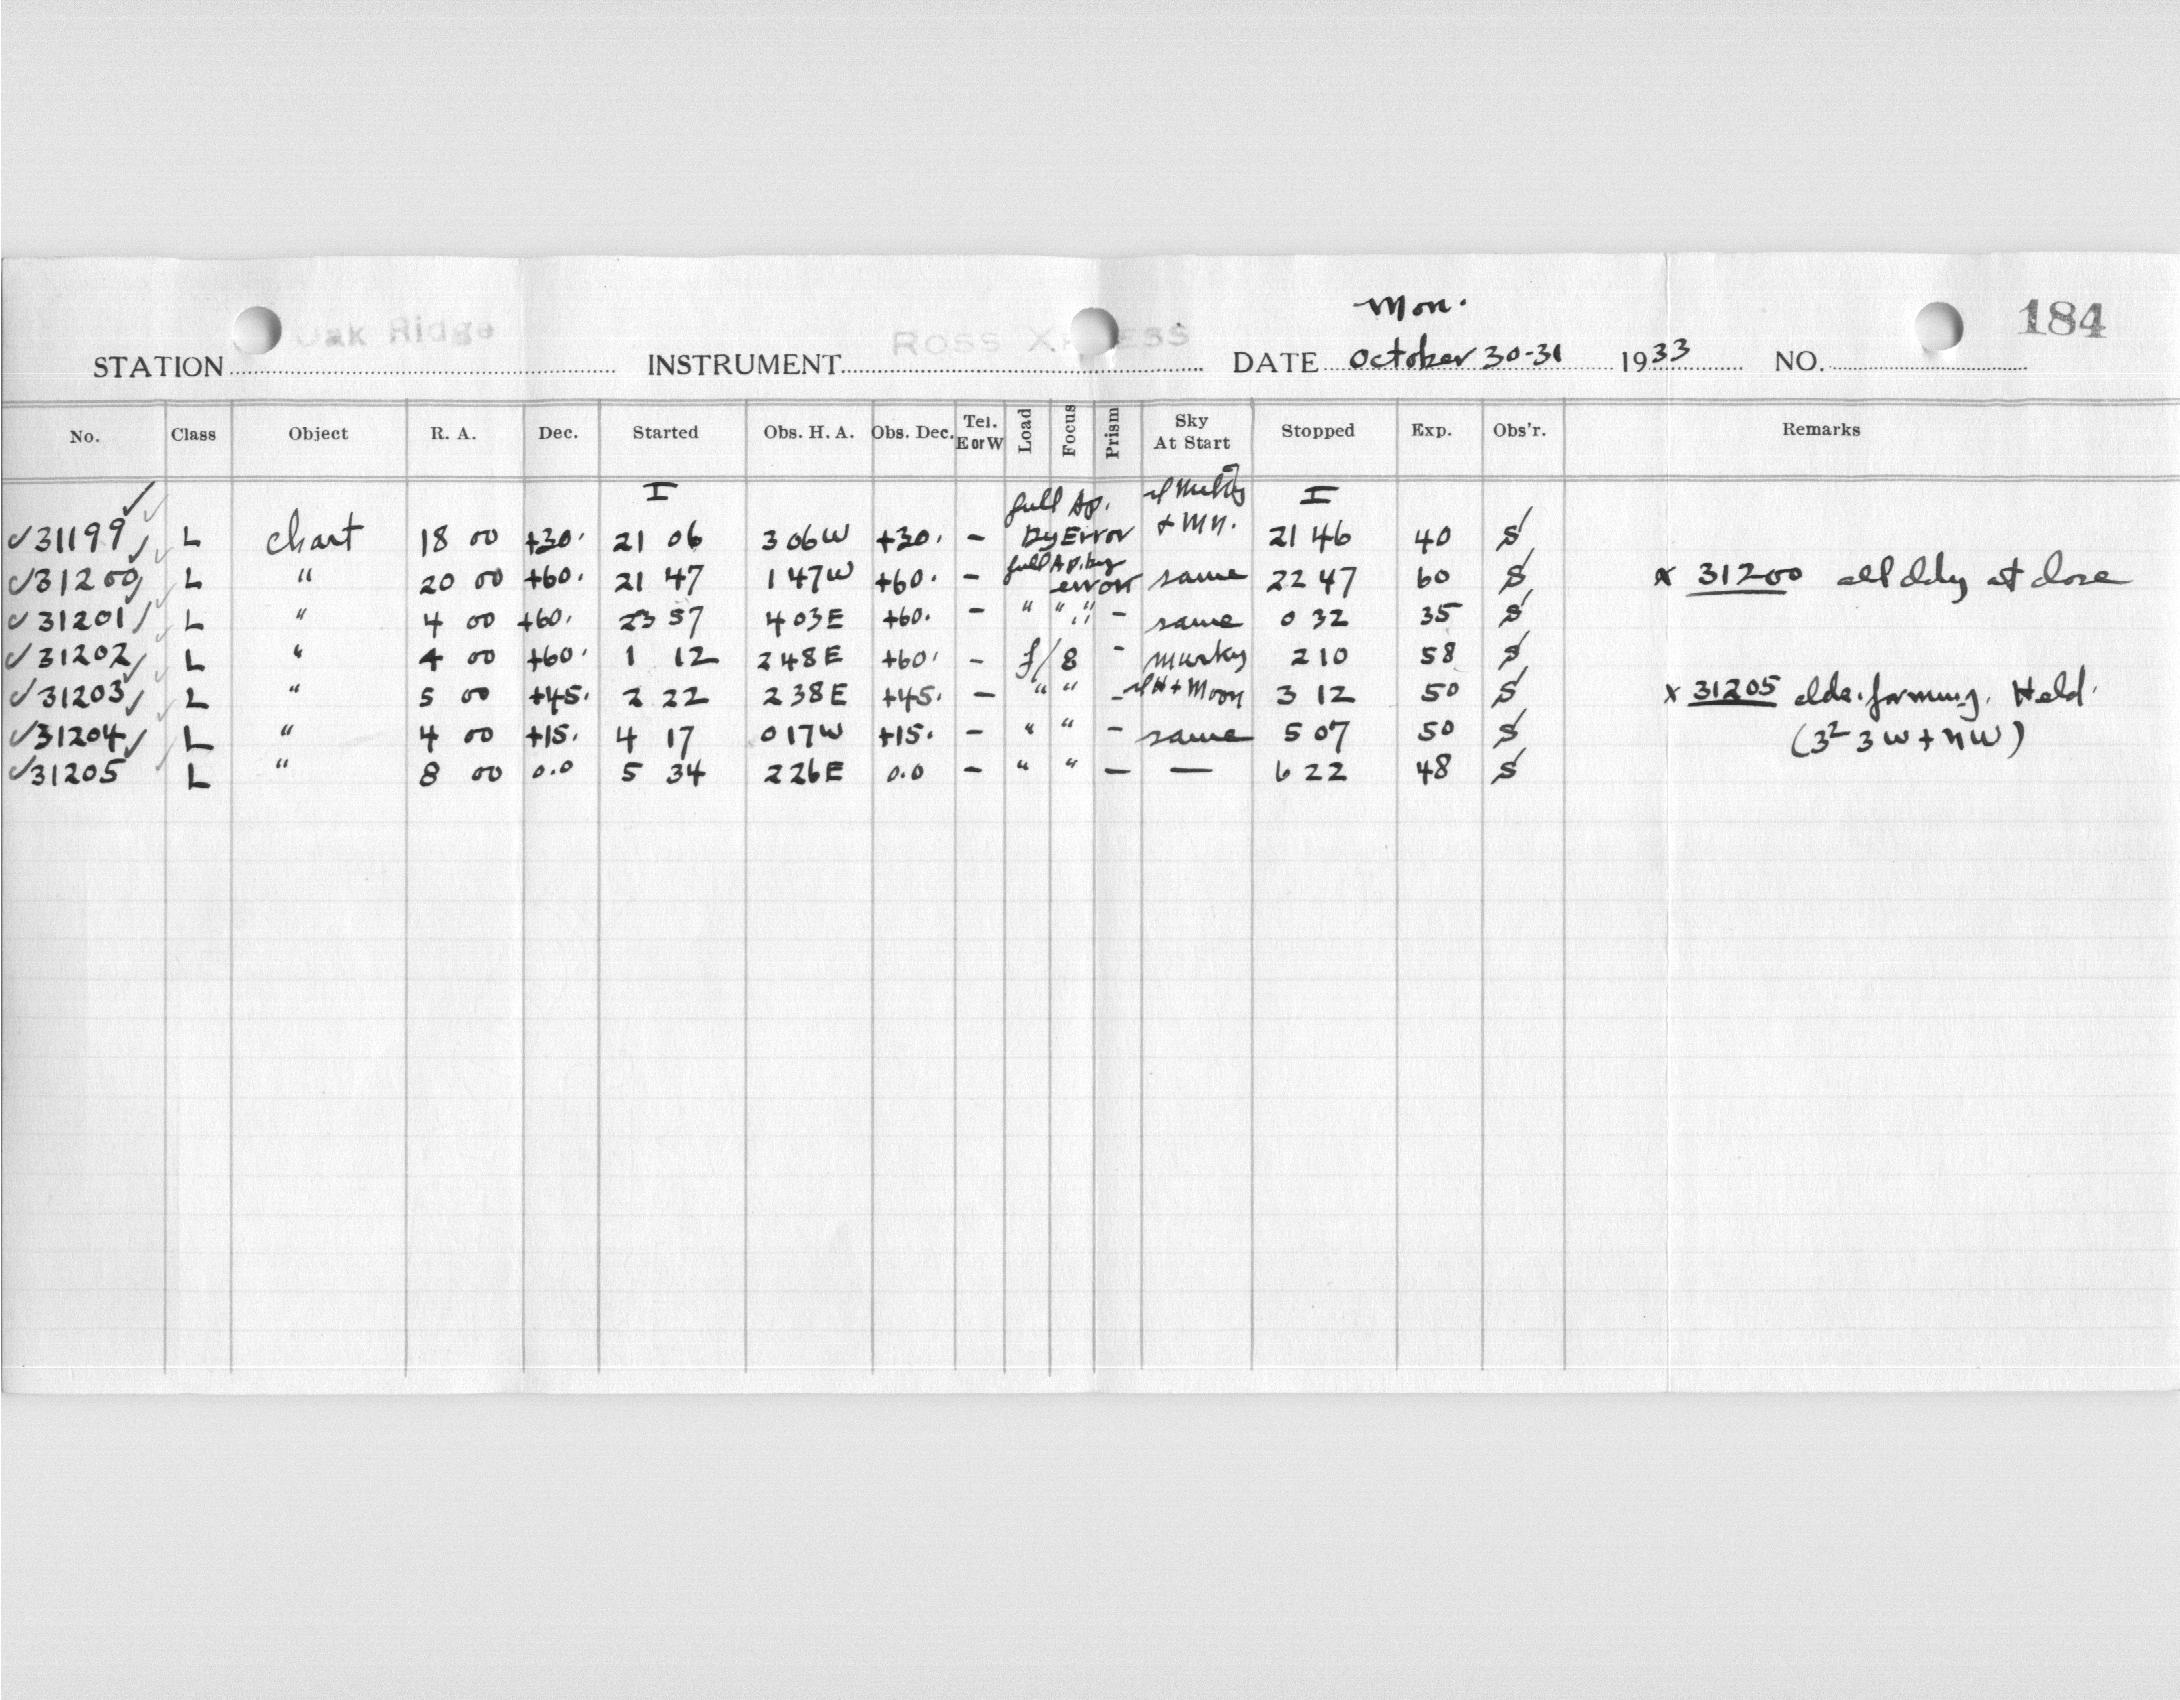 Mon.
Oak Ridge Ross Xpress 184
STATION INSTRUMENT DATE October 30-31 1933 NO.
No. Class Object R. A. Dec. Started Obs. H. A. Obs. Dec. Tel. E or W Load Focus Prism Sky At Start Stopped Exp. Obs'r. Remarks
I full Ap. I
31199 L chart 18 00 +30. 21 06 3 06 W +30. - By Error + Mn. 21 46 40 S
31200 L " 20 00 +60. 21 47 1 47 W +60. - full Ap. by error same 22 47 60 S x 31200 all cldy at close
31201 L " 4 00 +60. 23 57 4 03 E +60. - " " " - same 0 32 35 S
31202 L " 4 00 +60. 1 12 2 48 E +60. - f/8 - murky 2 10 58 S
31203 L " 5 00 +45. 2 22 2 38 E +45. - " " - + Moon 3 12 50 S x 31205 clds. forming. Held.
31204 L " 4 00 +15. 4 17 0 17 W +15. - " " - same 5 07 50 S
31205 L " 8 00 0.0 5 34 2 26 E 0.0 - " " - — 6 22 48 S